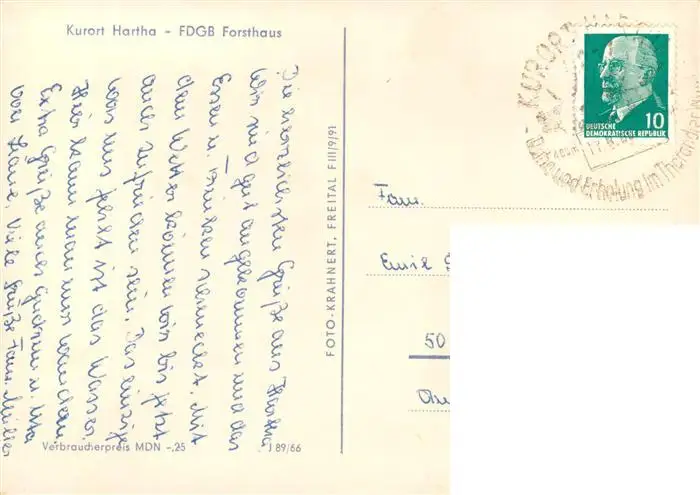 Kurort Hartha - FDGB Forsthaus
Die herzlichsten Grüße aus Hartha
Wir sind gut angekommen und das
Essen u. Trinken schmeckt. Mit
dem Wetter können wir bis jetzt
auch zufrieden sein. Das einzige
was uns fehlt ist das Wasser.
Hier kann man nur wandern.
Extra Grüße auch u.
von Viele Grüße Fam. Müller
Verbraucherpreis MDN -,25
J 89/66
FOTO-KRAHNERT, FREITAL F III/9/91
KURORT
Ruhe und Erholung im
10
DEUTSCHE
DEMOKRATISCHE REPUBLIK
Fam.
Emil
50